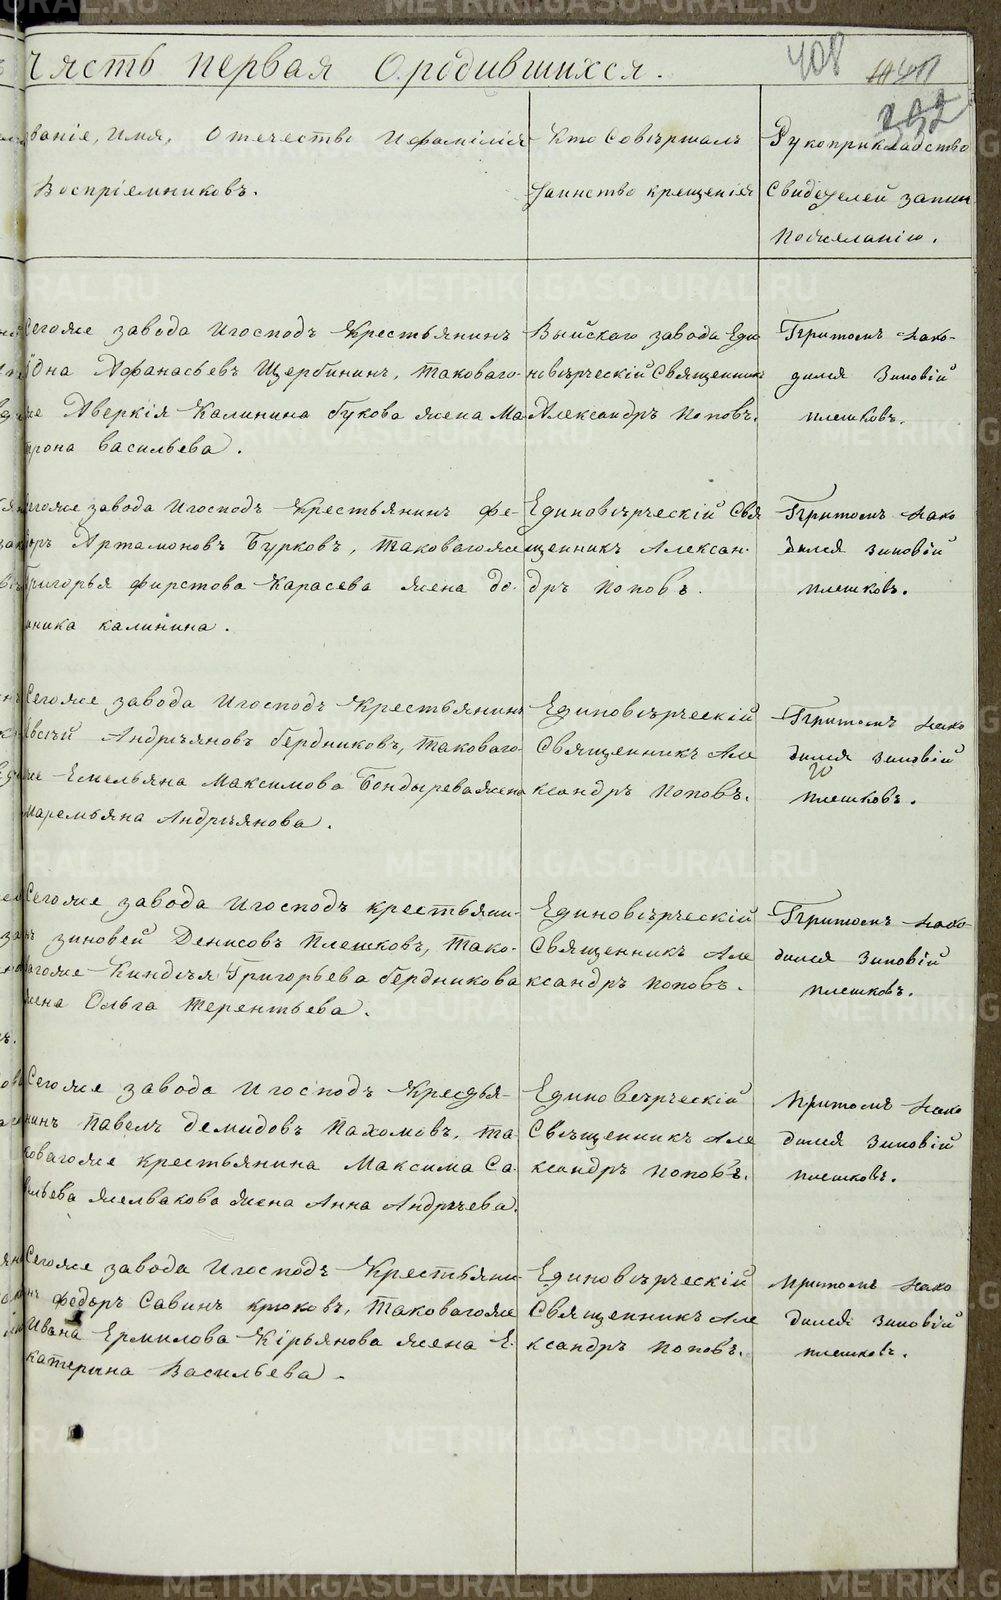 Часть первая О родившихся.
408
411
232
званіе, Имя, Отечество Ифамилія
Воспріемниковъ.
Кто Совѣршалъ
Таинство крещенія
Рукоприкладство
Свидѣтелей запис
Пожеланію.
Сегоже завода Игосподъ Крестьянинъ
Іона Афанасьевъ Щербининъ, таковаго-
же Аверкія Калинина букова жена Ма
трона васильева.
Выйскаго завода Еди
новѣрческій Священникъ
Александръ Поповъ.
Притомъ нахо-
дился Зиновій
плешковъ.
Сегоже завода Игосподъ Крестьянинъ Фе-
доръ Артамоновъ Бурковъ, таковагоже
Григорья фирстова Карасева жена до-
мника калинина.
Единовѣрческій Свя
щенникъ Алексан-
дръ Поповъ.
Притомъ нахо
дился зиновій
плешковъ.
Сегоже завода Игосподъ Крестьянинъ
Евсѣй Андрѣяновъ бердниковъ, таковаго-
же Емельяна Максимова Бондырева жена
маремьяна Андрѣянова.
Единовѣрческій
Священникъ Але
ксандръ Поповъ.
Притомъ нахо
дился зиновій
плешковъ.
Сегоже завода Игосподъ крестьяни-
нъ зиновей Денисовъ Плешковъ, тако-
вагоже Киндѣя Григорьева бердникова
жена Ольга терентьева.
Единовѣрческій
Священникъ Але
ксандръ поповъ.
Притомъ нахо-
дился Зиновій
плешковъ.
Сегоже завода Игосподъ Кресдья-
нинъ павелъ демидовъ Пахомовъ, та
ковагоже крестьянина Максима Са-
вельева желвакова жена Анна Андрѣева.
Единовѣрческій
Свѣщенникъ Але
ксандръ поповъ.
притомъ нахо
дился зиновій
плешковъ.
Сегоже завода Игосподъ Крестьяни-
нъ федоръ Савинъ крюковъ, таковагоже
Ивана Ермилова Кірьянова жена Е-
катерина Васильева.
Единовѣрческій
Священникъ Але
ксандръ поповъ.
притомъ нахо
дился зиновій
плешковъ.
METRIKI.GASO-URAL.RU